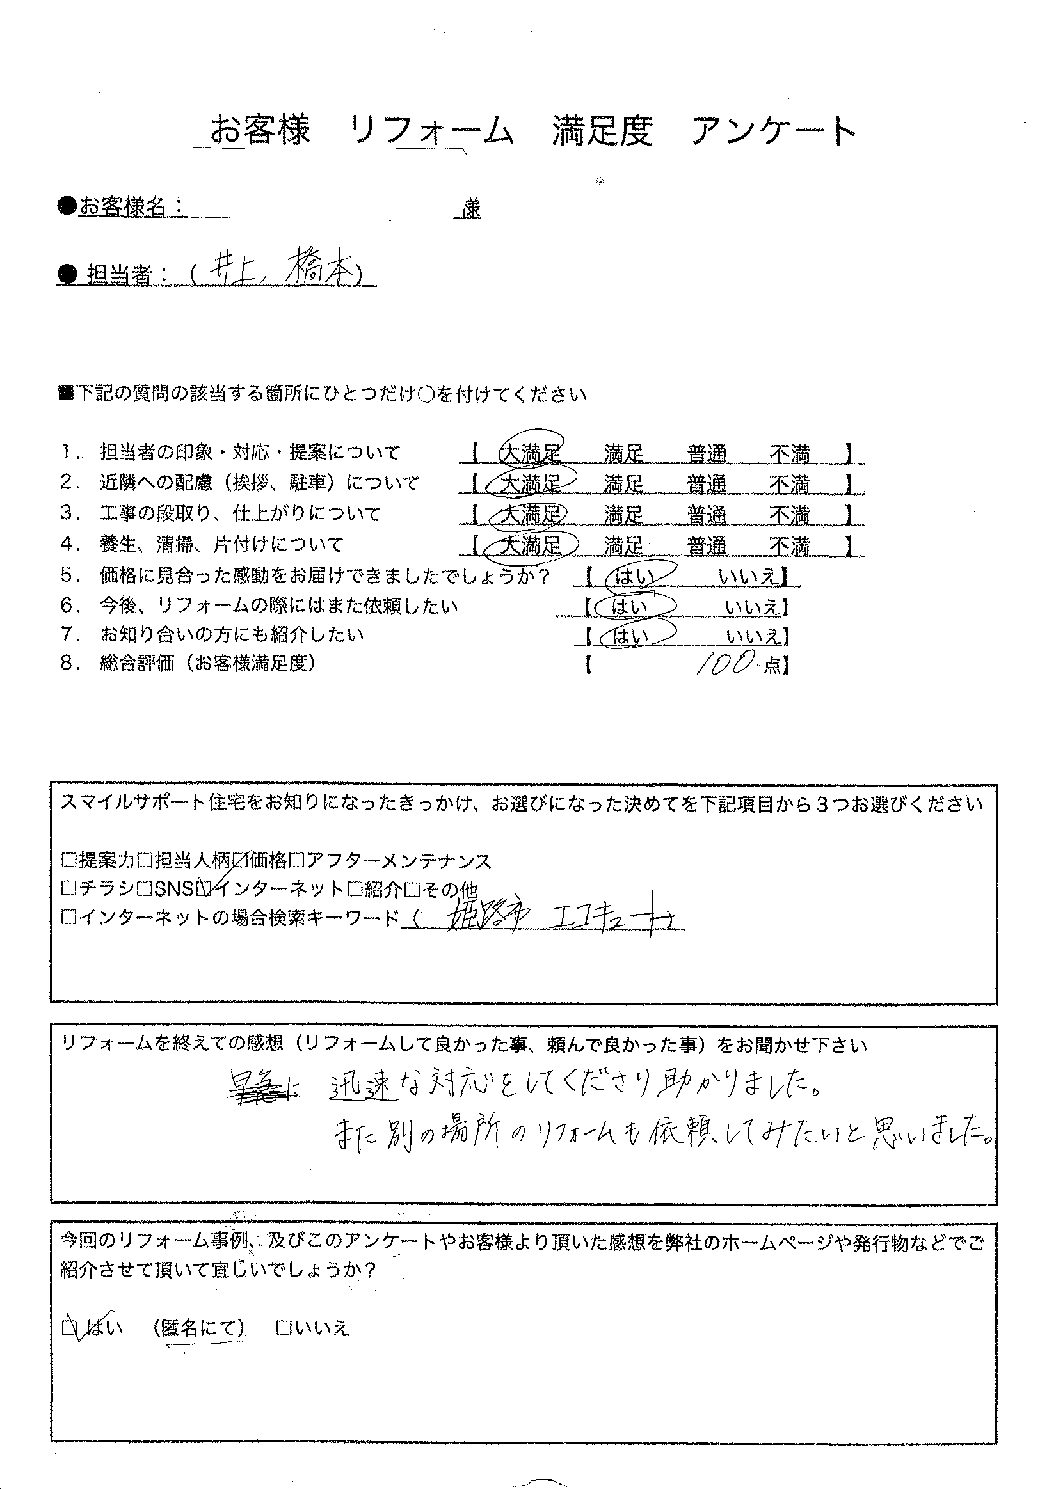 お客様　リフォーム　満足度　アンケート
●お客様名：　　　　　　　様
● 担当者：（井上、橋本）
■下記の質問の該当する箇所にひとつだけ○を付けてください
1．担当者の印象・対応・提案について　【　大満足　満足　普通　不満　】
2．近隣への配慮（挨拶、駐車）について　【　大満足　満足　普通　不満　】
3．工事の段取り、仕上がりについて　【　大満足　満足　普通　不満　】
4．養生、清掃、片付けについて　【　大満足　満足　普通　不満　】
5．価格に見合った感動をお届けできましたでしょうか？　【　はい　いいえ】
6．今後、リフォームの際にはまた依頼したい　【　はい　いいえ】
7．お知り合いの方にも紹介したい　【　はい　いいえ】
8．総合評価（お客様満足度）　【　100点】
スマイルサポート住宅をお知りになったきっかけ、お選びになった決めてを下記項目から３つお選びください
□提案力□担当人柄☑価格□アフターメンテナンス
□チラシ□SNS☑インターネット□紹介□その他
□インターネットの場合検索キーワード（ 姫路市　エコキュート
リフォームを終えての感想（リフォームして良かった事、頼んで良かった事）をお聞かせ下さい
迅速な対応をしてくださり助かりました。
また別の場所のリフォームも依頼してみたいと思いました。
今回のリフォーム事例、及びこのアンケートやお客様より頂いた感想を弊社のホームページや発行物などでご
紹介させて頂いて宜しいでしょうか？
☑はい　（匿名にて）　□いいえ